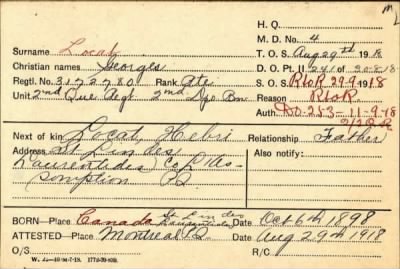 H. Q.
M. D. No. 4
Surname Locat T. O. S. Aug 29th 1918
Christian names Georges D. O. Pt. II 241 of
Regtl. No. 3172780 Rank Pte S. O. S. R to R 29-9-1918
Unit 2nd Que Regt 2nd Dpo Bn Reason R to R
Auth. DO-253-11-9-18
Next of kin Locat Hebri Relationship Father
Address St Lin des Also notify:
Laurentides Co L'As-
somption P.Q.
BORN—Place Canada St Lin des Laurentides Date Oct 6th 1898
ATTESTED—Place Montreal Q. Date Aug 29th 1918
O/S R/C